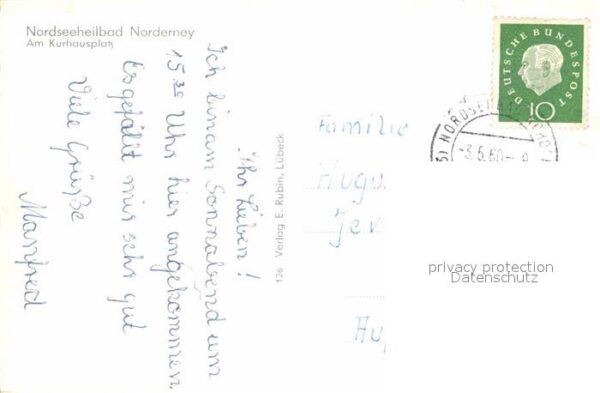 Nordseeheilbad Norderney
Am Kurhausplatz
Ihr Lieben!
Ich bin am Sonnabend um
15.30 Uhr hier angekommen
Es gefällt mir sehr gut
Viele Grüße
Manfred
126 Verlag E. Rubin, Lübeck
DEUTSCHE BUNDESPOST
10
NORDSEEHEILBAD NORD
-3.5.60-
Familie
Hugo
Jev
privacy protection
Datenschutz